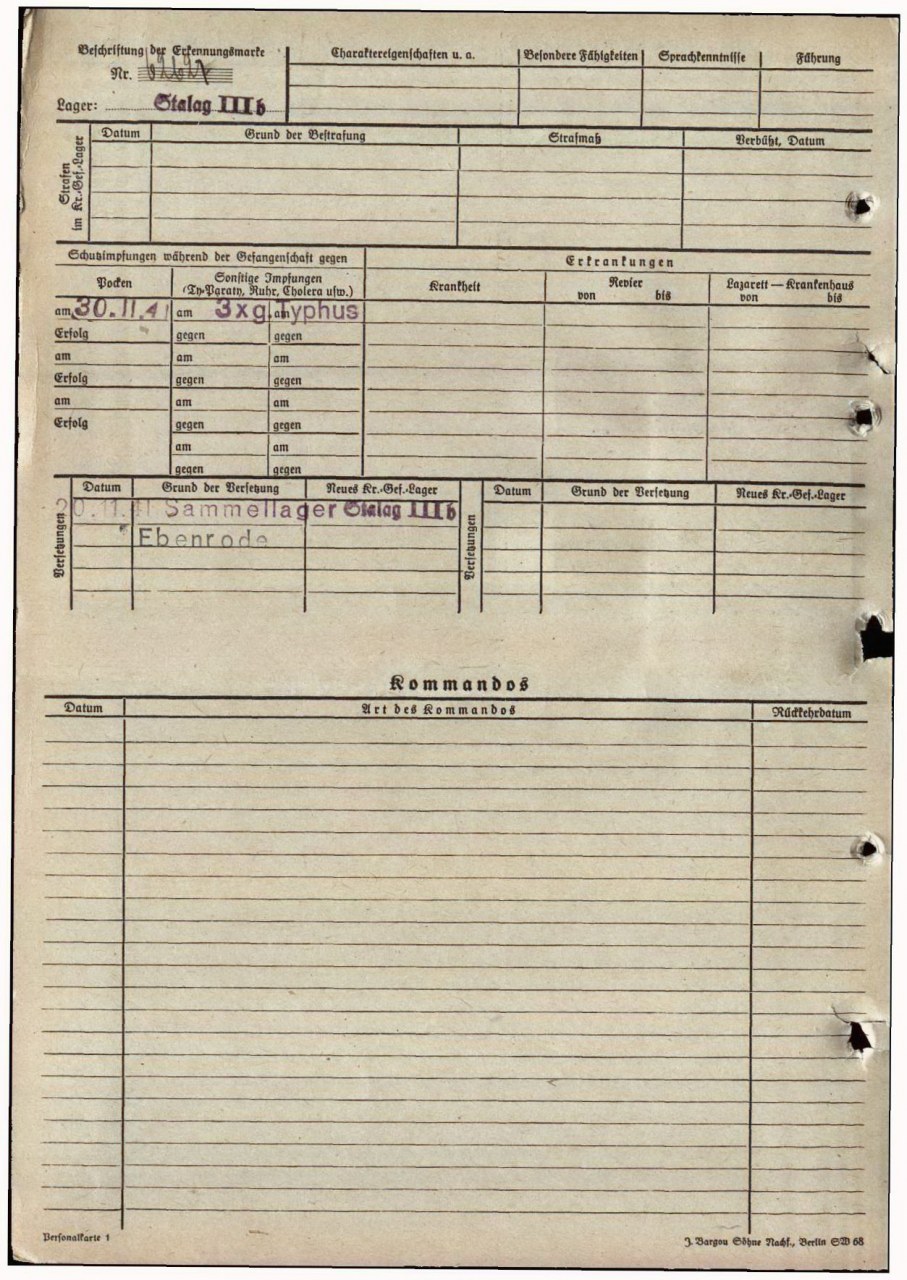 Beschriftung der Erkennungsmarke
Nr.
Lager: Stalag III b
Charaktereigenschaften u. a.
Besondere Fähigkeiten
Sprachkenntnisse
Führung
Strafen im Kr.-Gef.-Lager
Datum
Grund der Bestrafung
Strafmaß
Verbüßt, Datum
Schutzimpfungen während der Gefangenschaft gegen
Erkrankungen
Pocken
Sonstige Impfungen
(Ty-Paraty, Ruhr, Cholera usw.)
Krankheit
Revier
von bis
Lazarett — Krankenhaus
von bis
am 30.11.41 am 3xg. am Typhus
Erfolg gegen gegen
am am am
Erfolg gegen gegen
am am am
Erfolg gegen gegen
am am
gegen gegen
Versetzungen
Datum Grund der Versetzung Neues Kr.-Gef.-Lager
20.11.41 Sammellager Stalag III b
Ebenrode
Versetzungen
Datum Grund der Versetzung Neues Kr.-Gef.-Lager
Kommandos
Datum Art des Kommandos Rückkehrdatum
Personalkarte 1
J. Bargou Söhne Nachf., Berlin SW 68